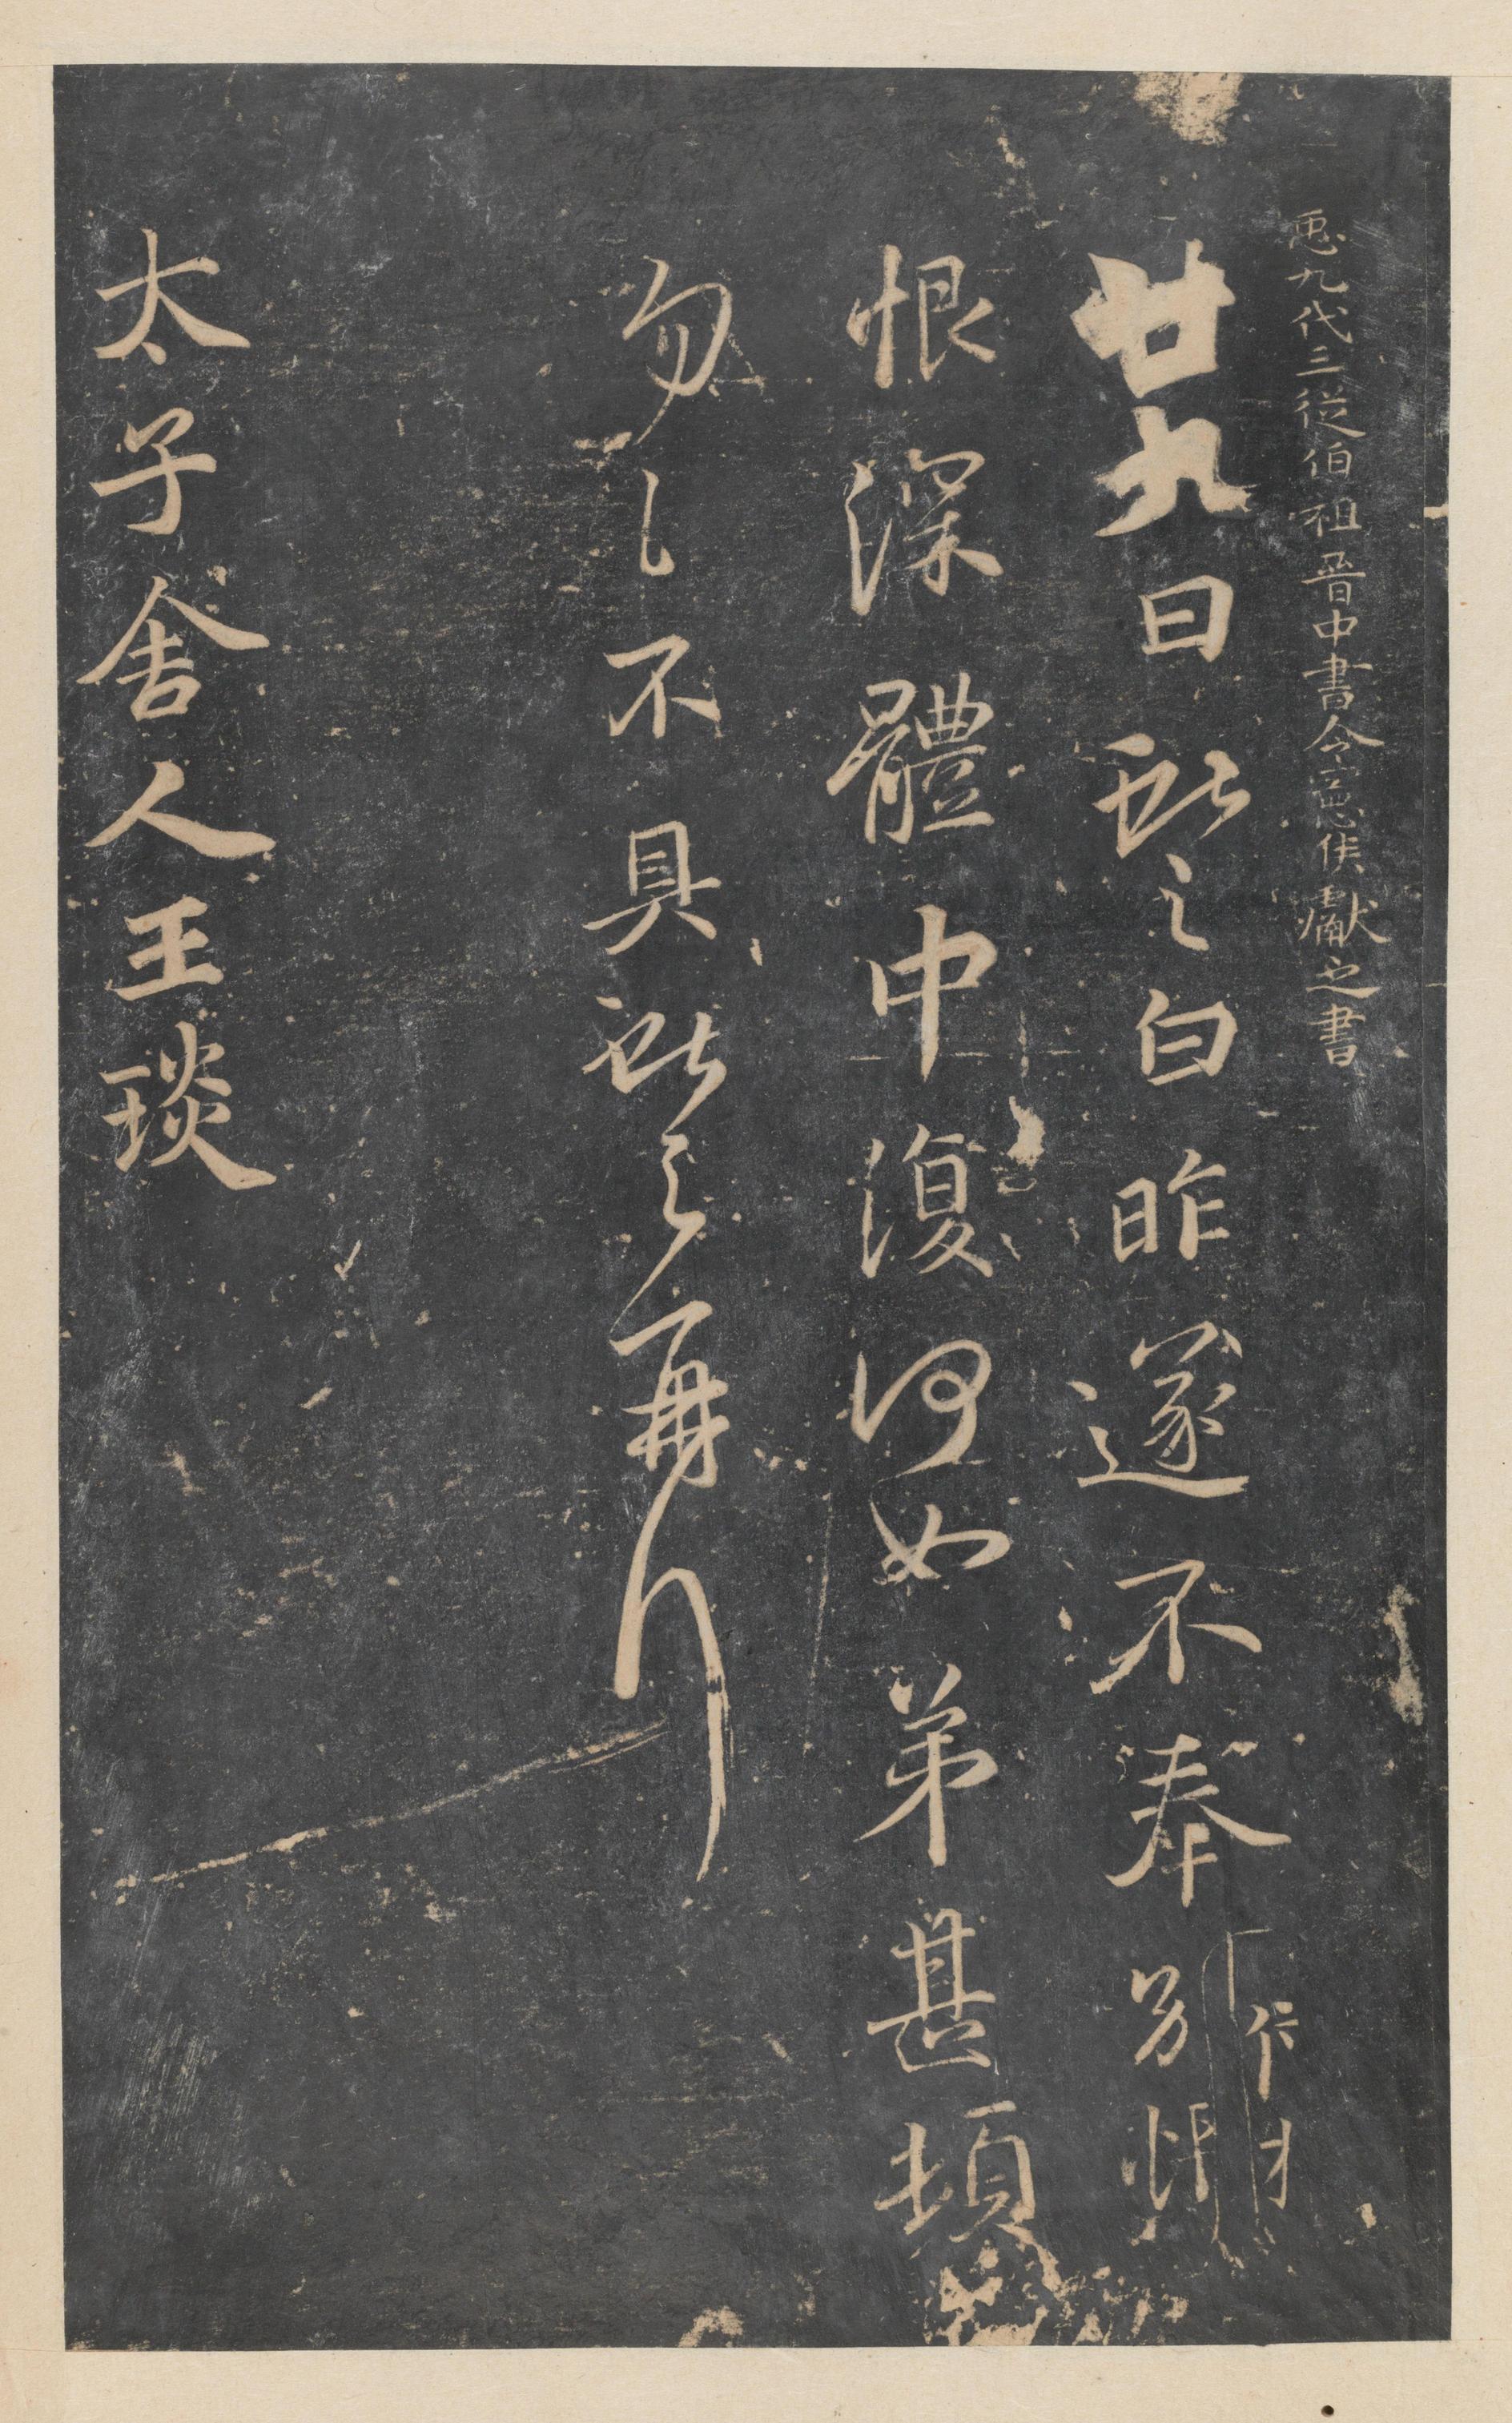 𢘑九代三從伯祖晉中書令憲侯獻之書
廿九日獻之白昨遂不奉別悵
恨深體中復何如弟甚頓
匆匆不具獻之再拜
太子舍人王琰